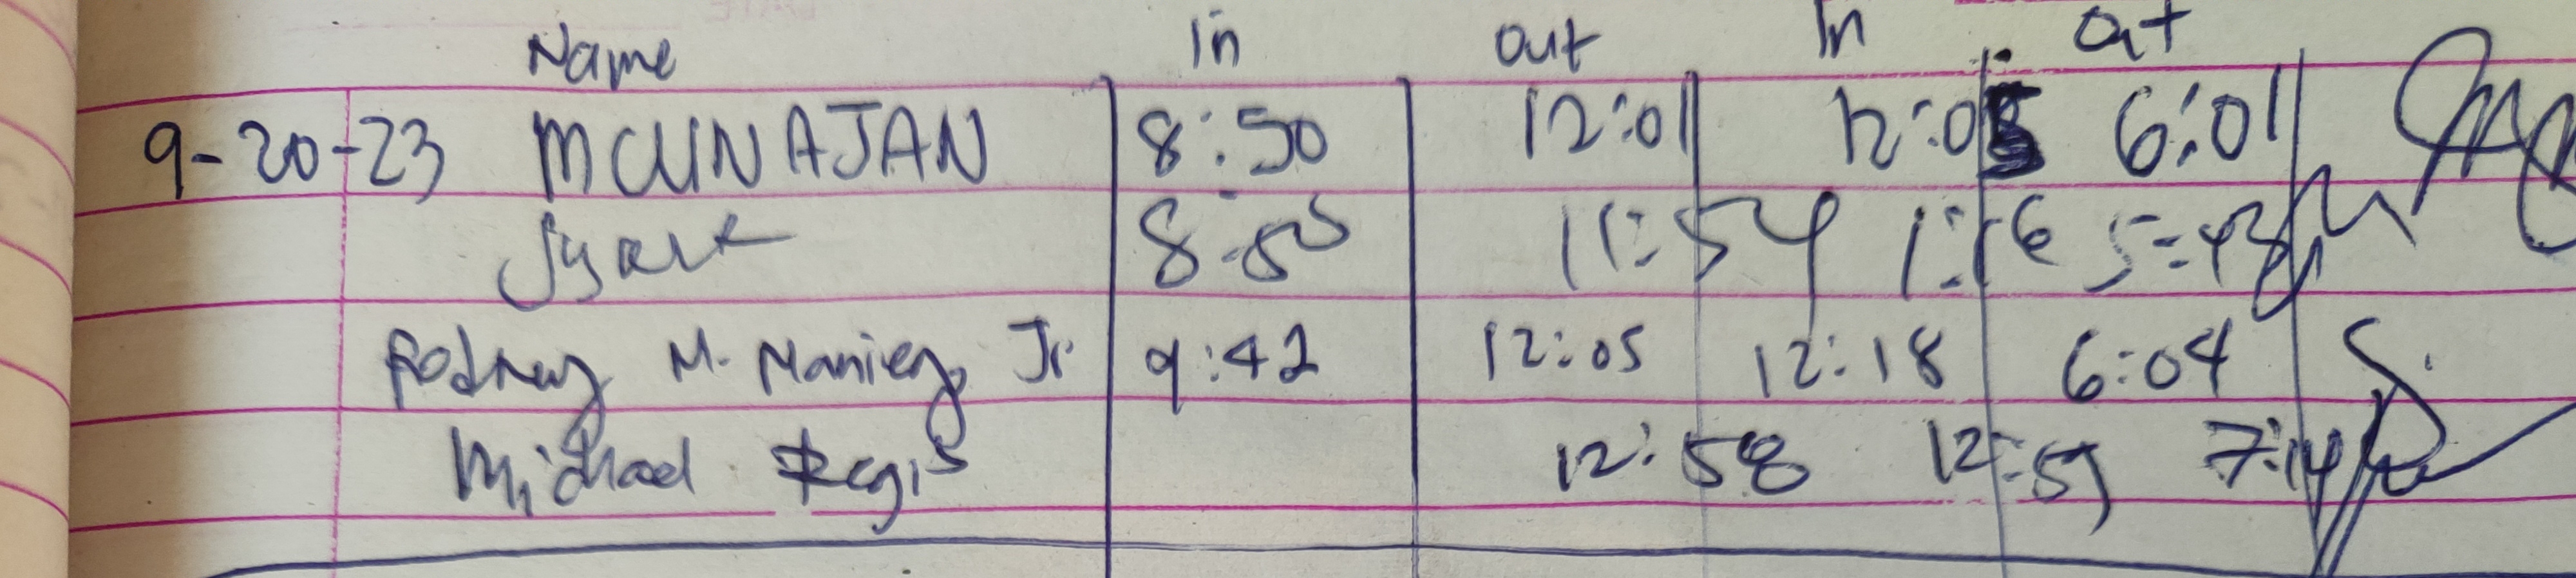 Name In Out In Out
9-20-23 MCUNAJAN 8:50 12:01 12:05 6:01
8:55 11:54 1:16 5:43
Rodney M. Maniego Jr 9:42 12:05 12:18 6:04
Michael Regis 12:58 12:59 7:14